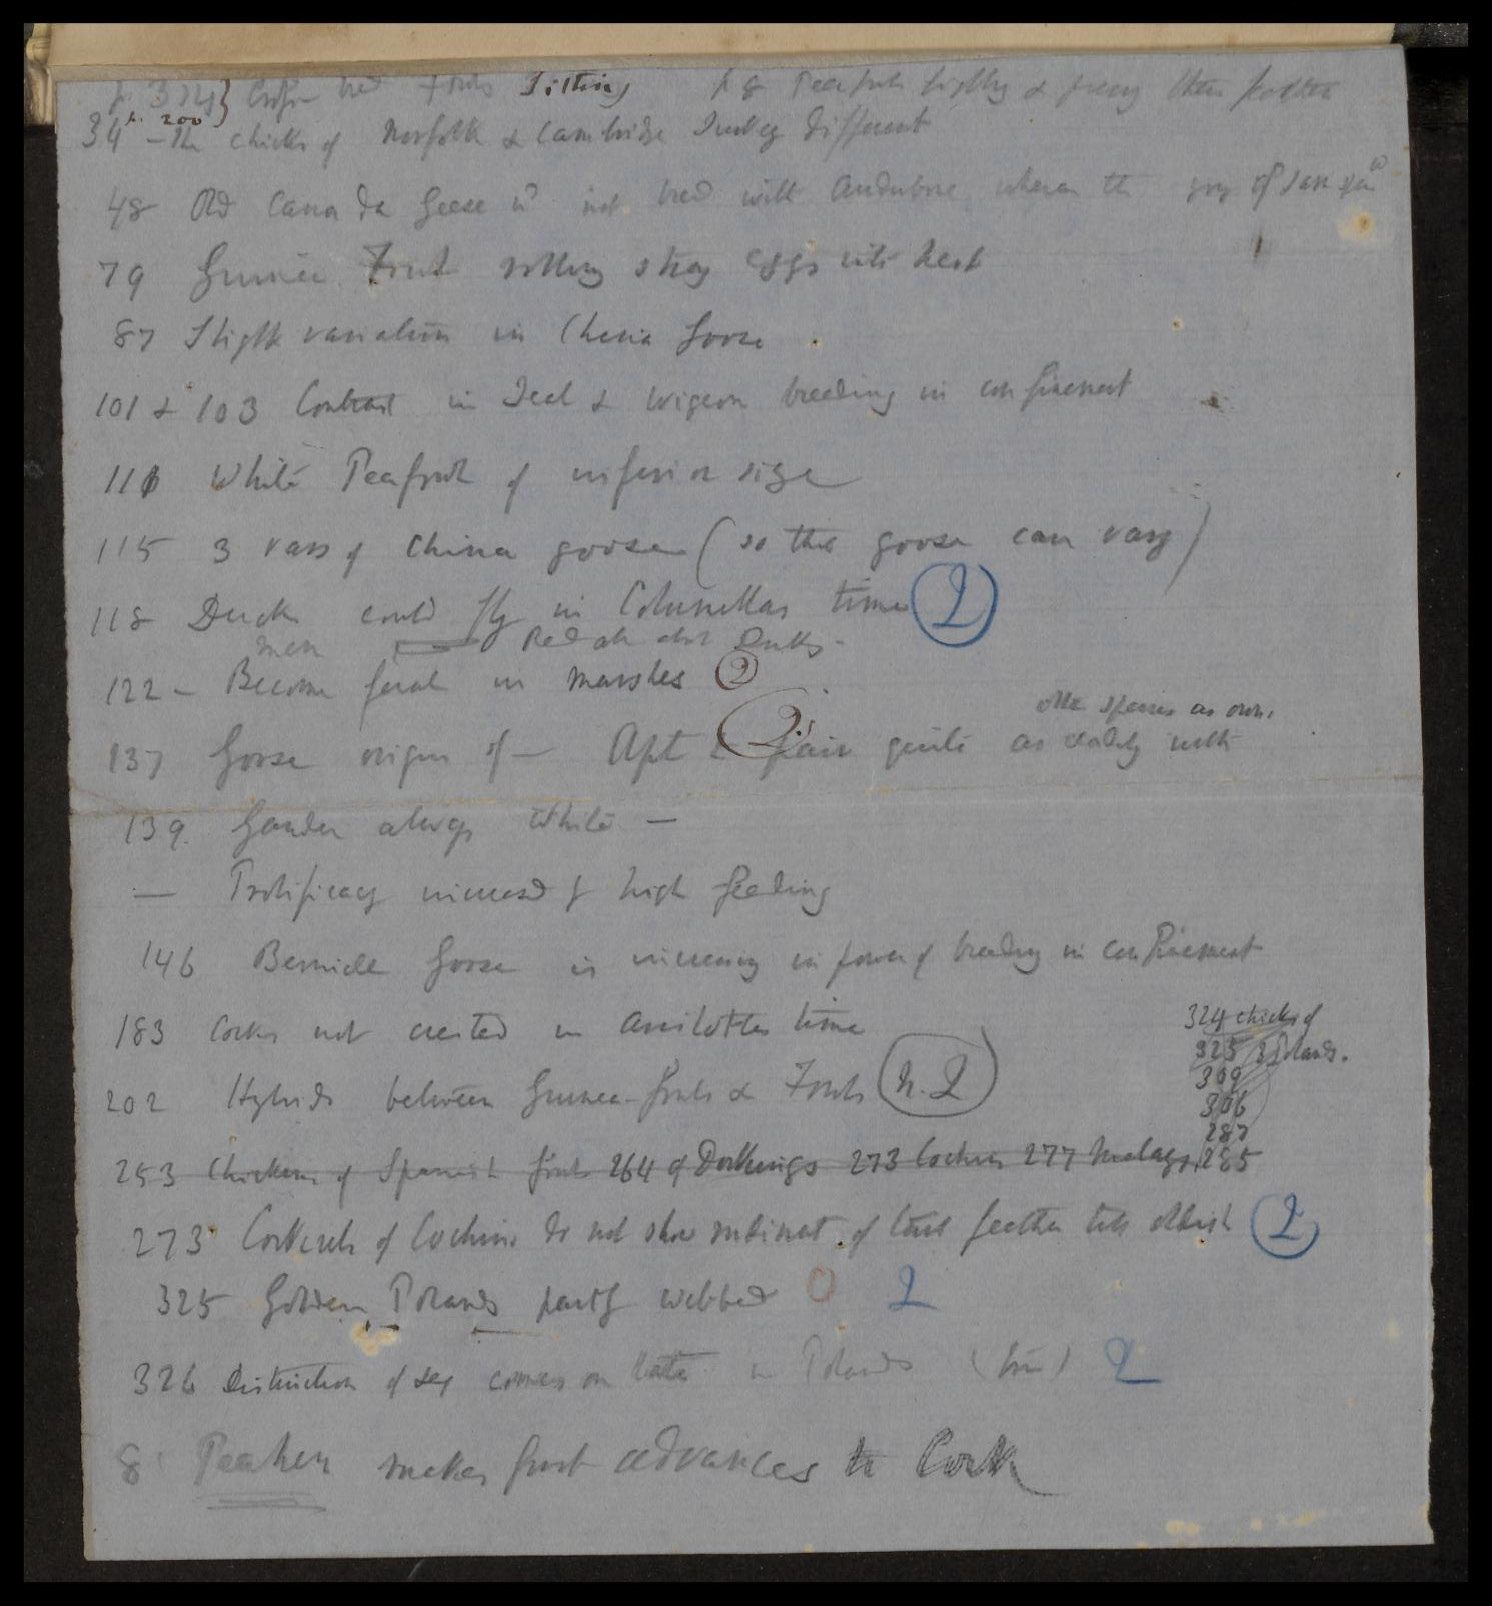 p. 324} Cross bred Fowls Sitting p 8 Peafowl
p. 200
34 – The chicks of Norfolk & Cambridge Turkey different
48 Old Canada Geese wd not breed with Audubons, whereas the
79 Guinea Fowl rolling stray eggs into nest
87 Slight variation in China Goose
101 & 103 Contrast in Teal & Wigeon breeding in confinement
110 White Peafowl of inferior size
115 3 vars of China goose (so this goose can vary)
118 Ducks could fly in Columellas time Q
Read all about Ducks –
122 – Become feral in marshes Q
other species as own.
137 Goose origin of – Apt to pair quite as readily with Q
139 Gander always White –
— Prolificacy increased by high feeding
146 Bernicle Goose is increasing in power of breeding in confinement
183 Cocks not crested in Aristotles time
202 Hybrids between Guinea-fowls & Fowls (N.Q)
324 chicks of
325 Polands.
309
306
287
253 Chickens of Spanish fowl 264 of Dorkings 273 Cochins 277 Malays, 285
273 Cockerels of Cochins do not show rudiment of tail feather till oldish Q
325 Golden Polands partly webbed O Q
326 Distinction of sex comes on late in Polands Q
8 Peahen makes first advances to Cock